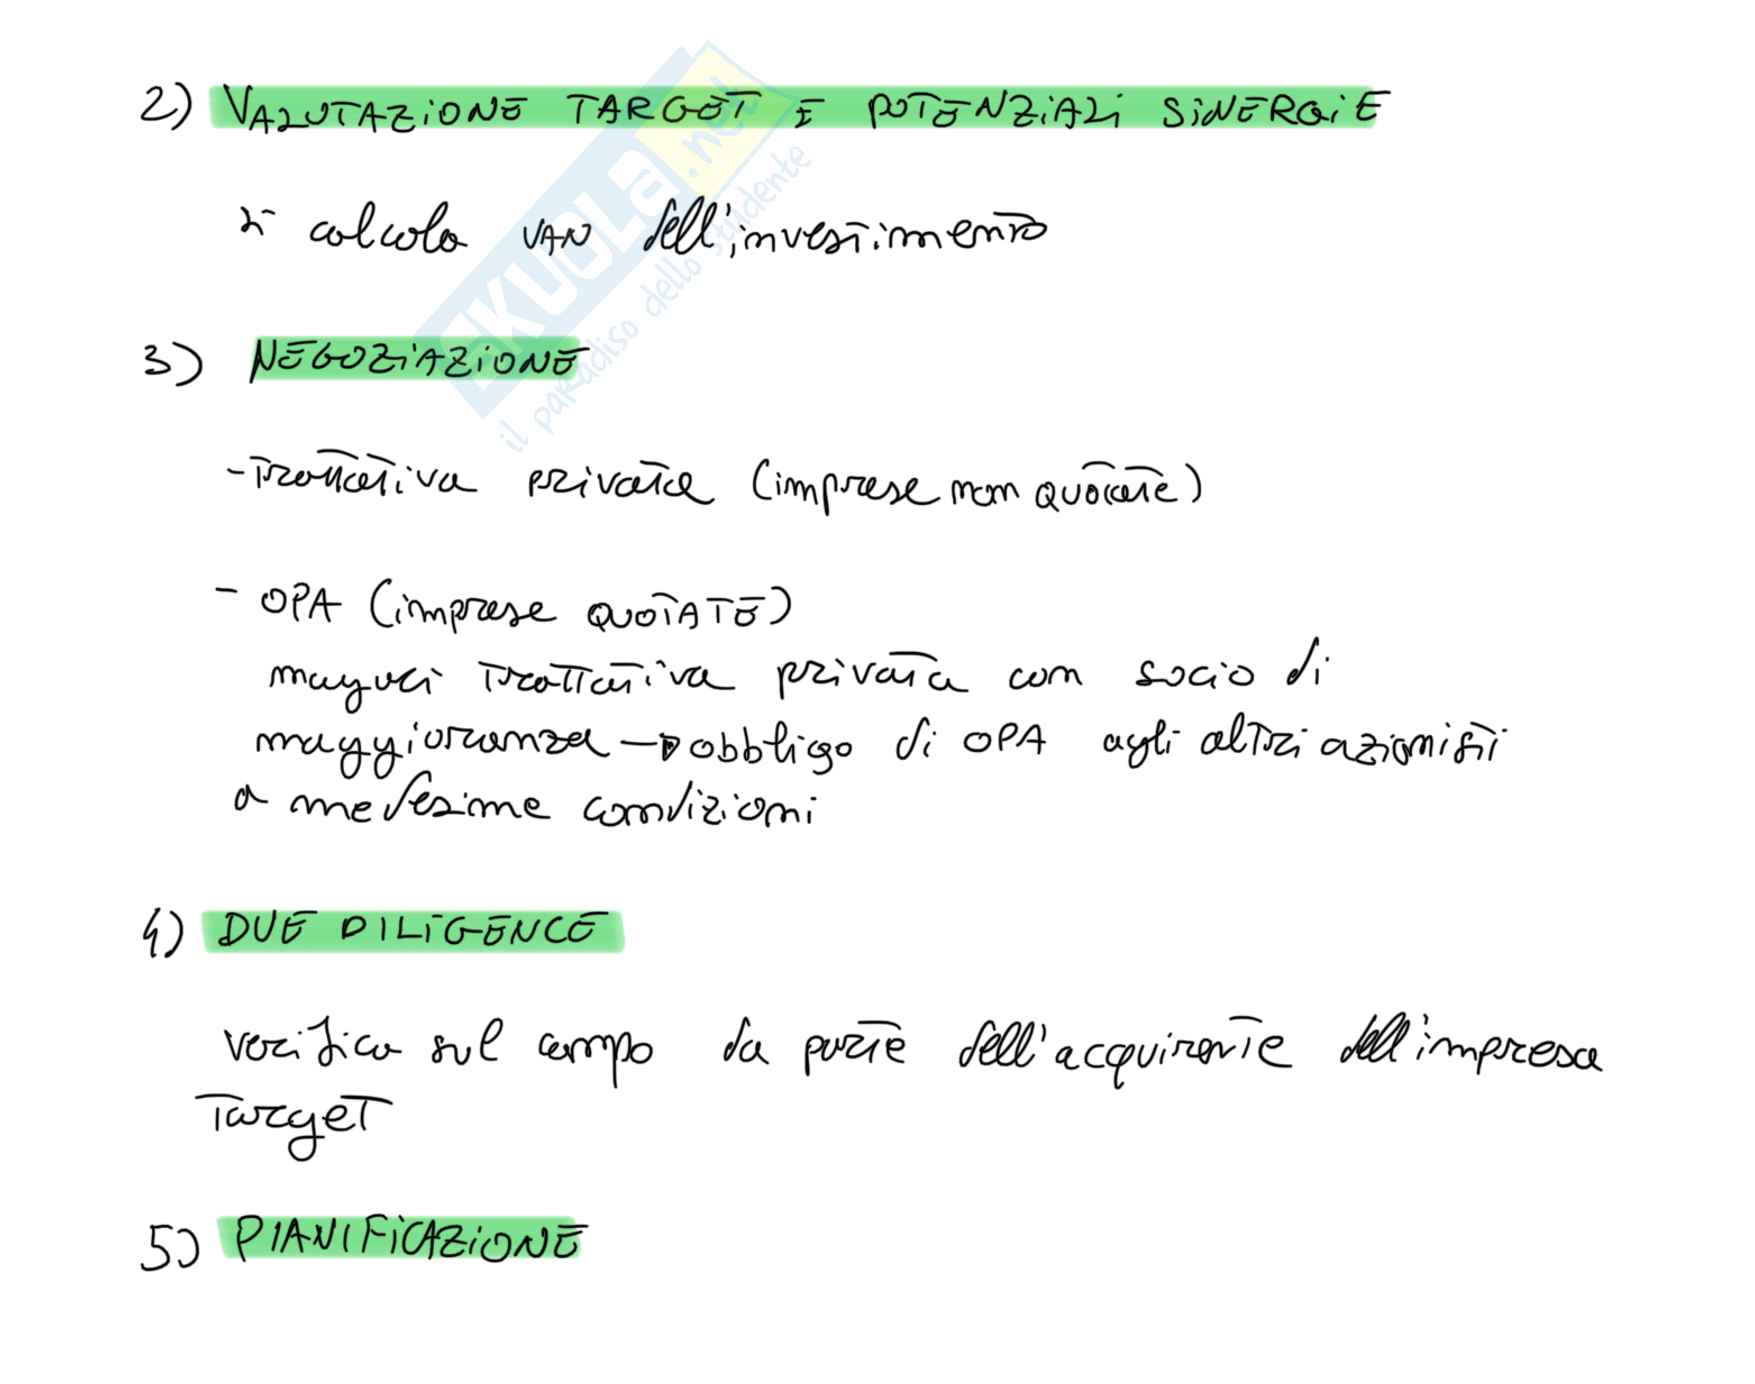 2) VALUTAZIONE TARGET E POTENZIALI SINERGIE
si calcola VAN dell'investimento
3) NEGOZIAZIONE
- Trattativa privata (imprese non quotate)
- OPA (imprese QUOTATE)
magari trattativa privata con socio di
maggioranza → obbligo di OPA agli altri azionisti
a medesime condizioni
4) DUE DILIGENCE
verifica sul campo da parte dell'acquirente dell'impresa
Target
5) PIANIFICAZIONE
SKUOLA.net
il paradiso dello studente